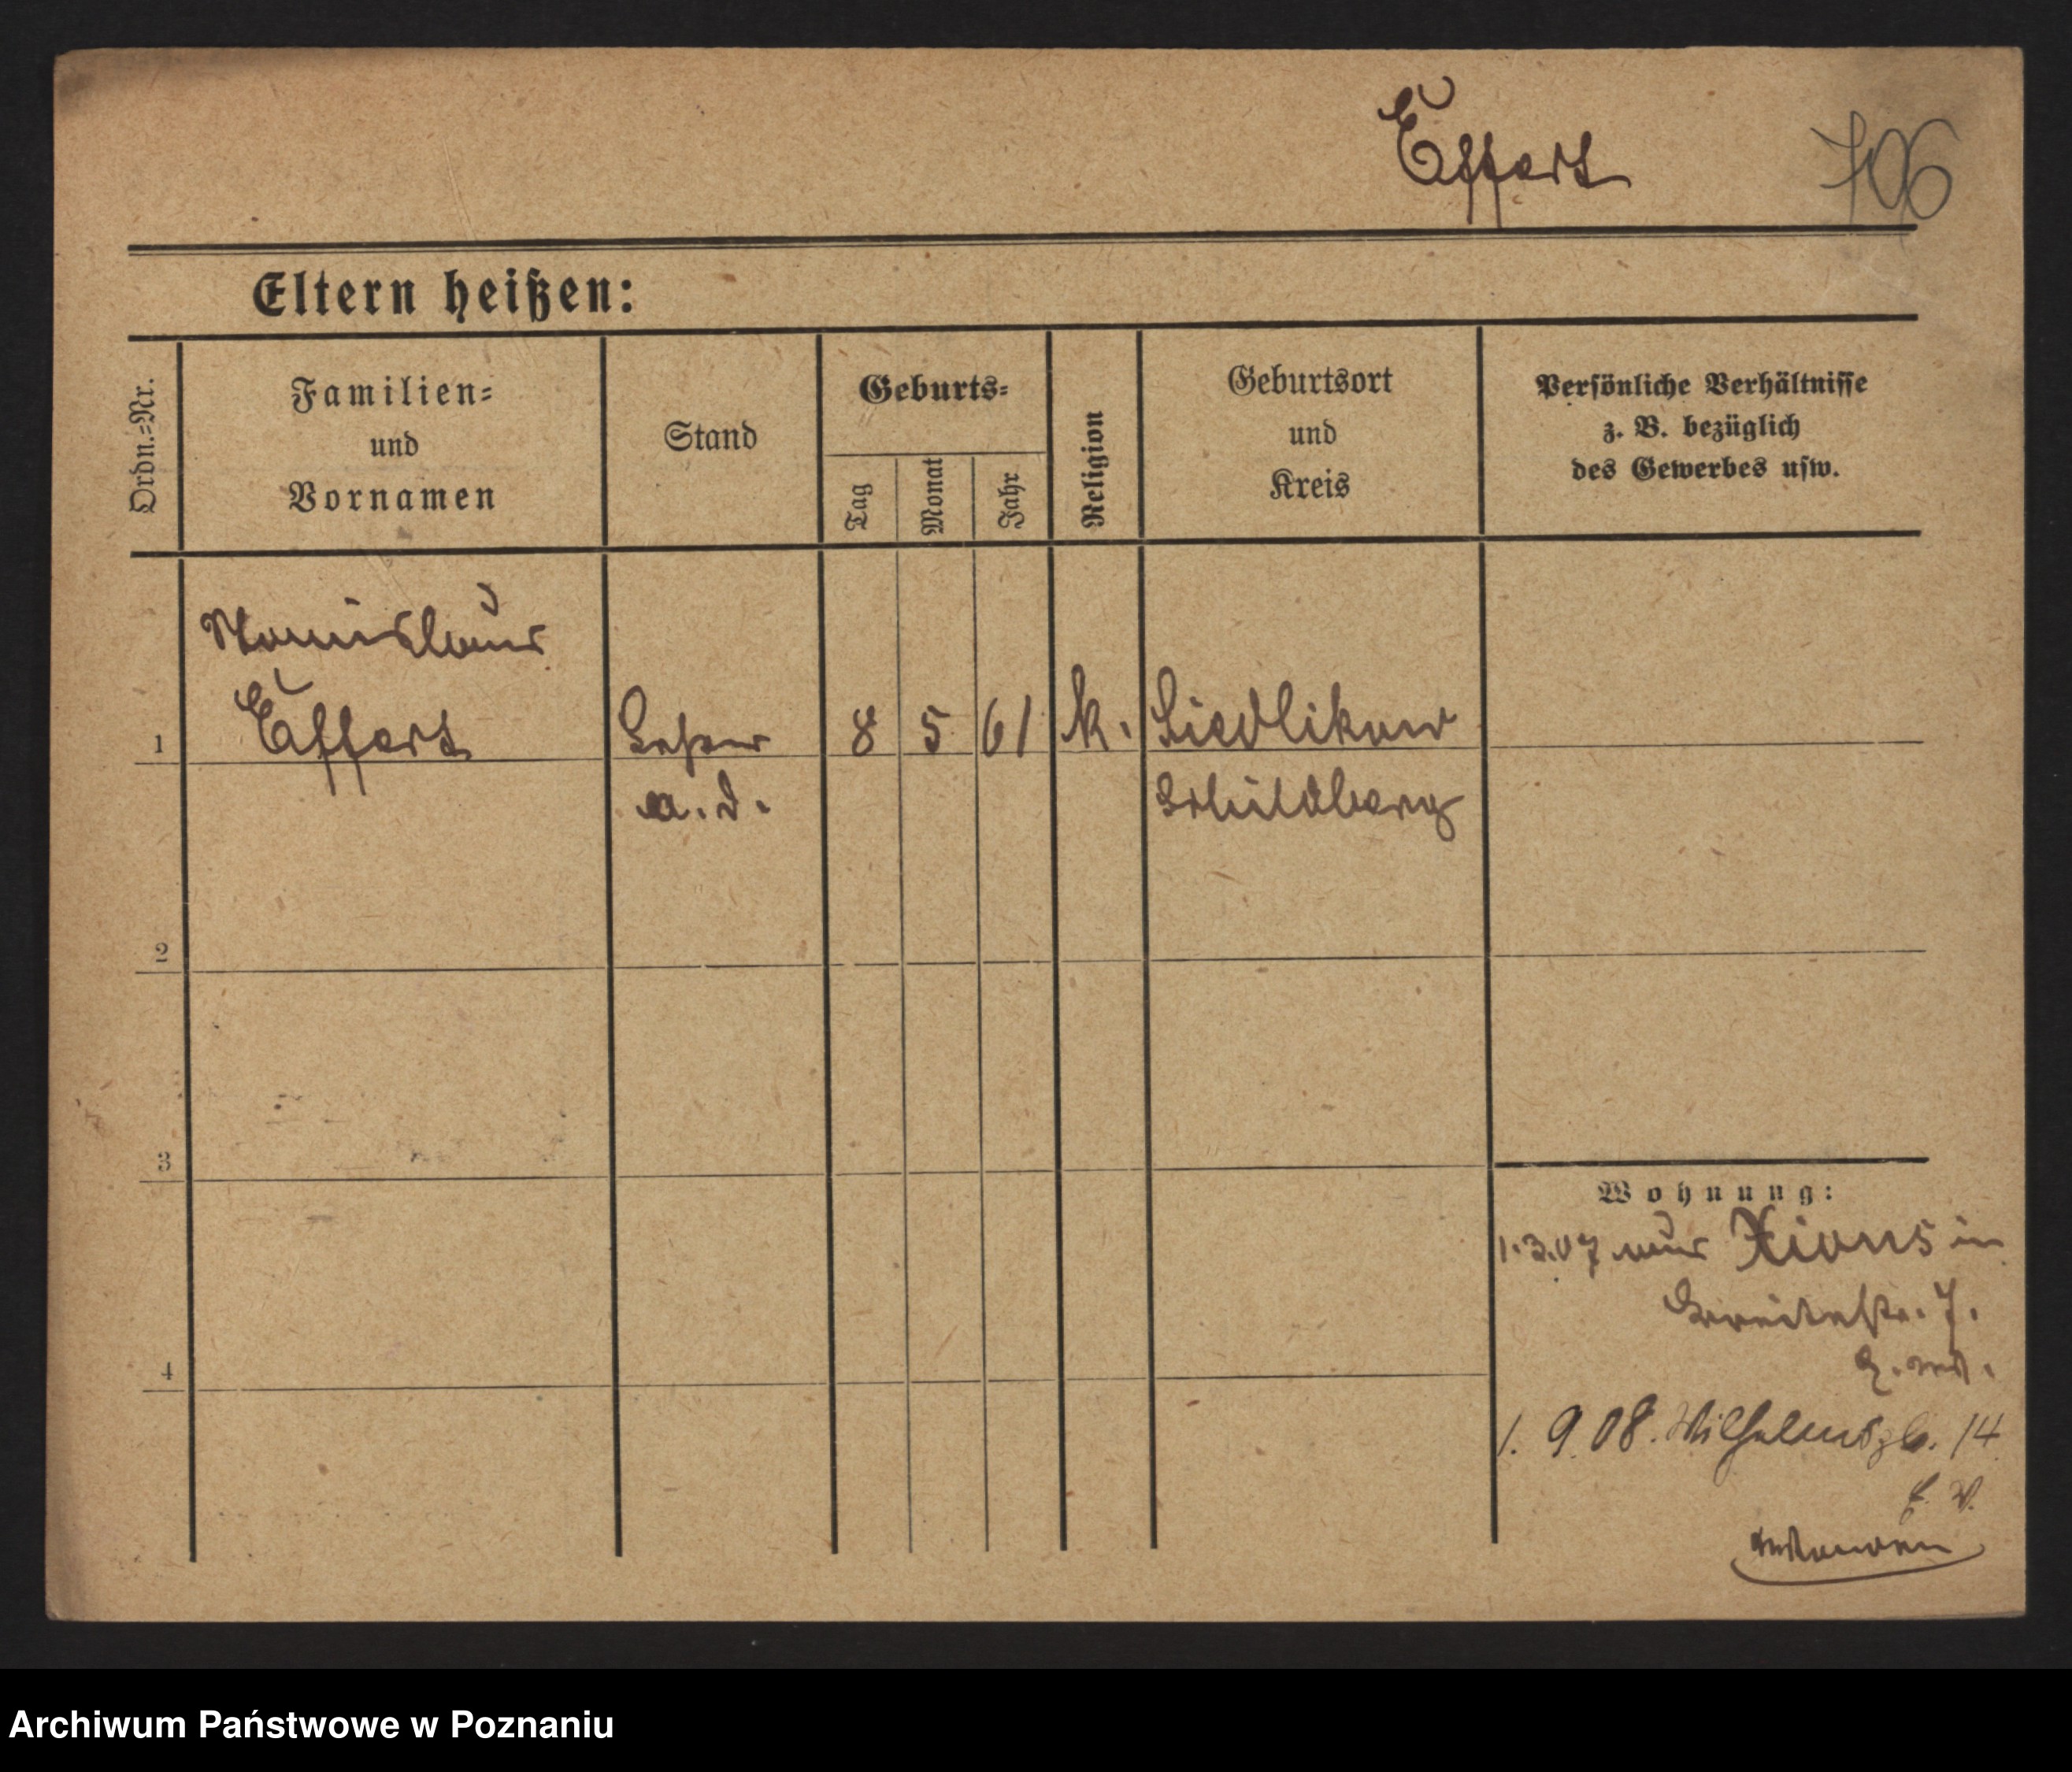 Effert 706
Eltern heißen:
Ordn.=Nr.
Familien=
und
Vornamen
Stand
Geburts=
Tag
Monat
Jahr
Religion
Geburtsort
und
Kreis
Persönliche Verhältnisse
z. B. bezüglich
des Gewerbes usw.
Stanislaus
1 Effert Lehrer 8 5 61 k. Siedlikow
a. D. Schildberg
2
3
4
Wohnung:
1.3.07 aus Xions in
Breitestr. 7.
1. 9. 08. Wilhelmspl. 14
Archiwum Państwowe w Poznaniu